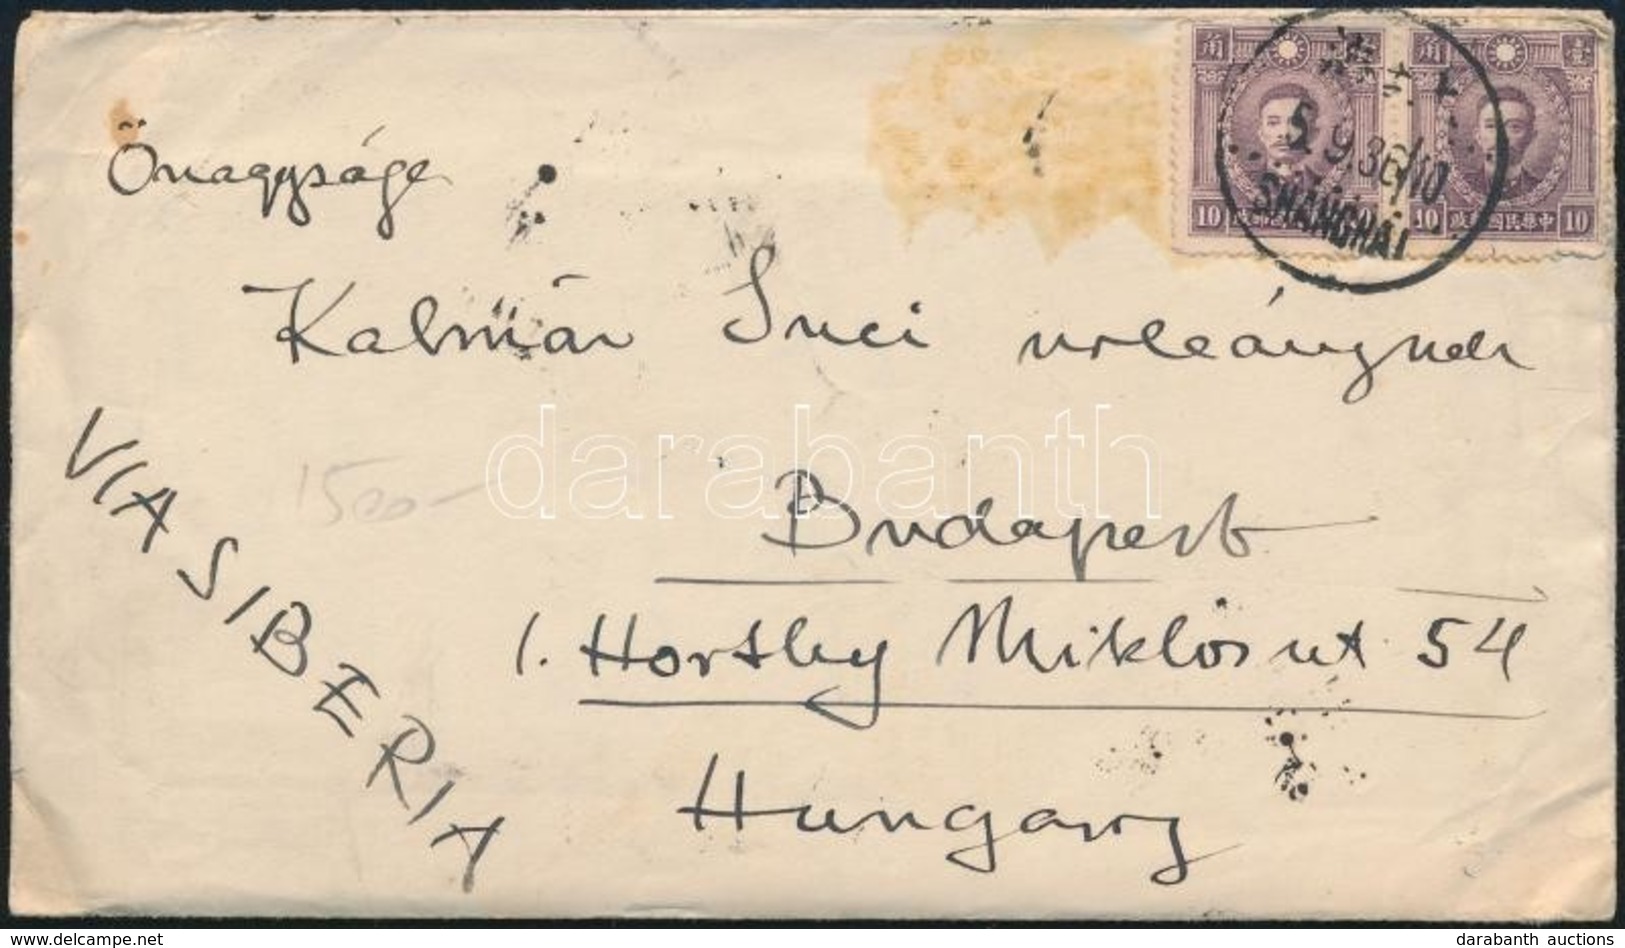 Önagysága
Kalmár Suci urleánynak
Budapest
I. Horthy Miklós ut 54
Hungary
VIA SIBERIA
1500-
角 壹
10 10 中華民國郵政 10
上海
5.9.36/10
SHANGHAI
darabanth
www.delcampe.net
darabanth auctions